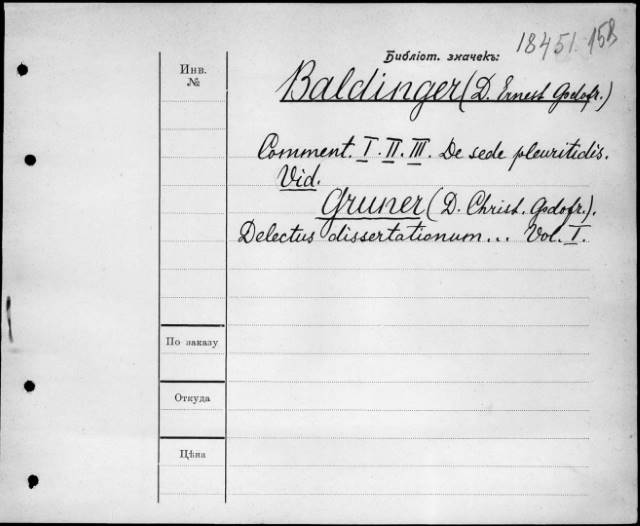 18451. 158
Библіот. значекъ:
Инв.
№
Baldinger (D. Ernest Godofr.)
Comment. I. II. III. De sede pleuritidis.
Vid.
Gruner (D. Christ. Godofr.).
Delectus dissertationum... Vol. I.
По заказу
Откуда
Цѣна